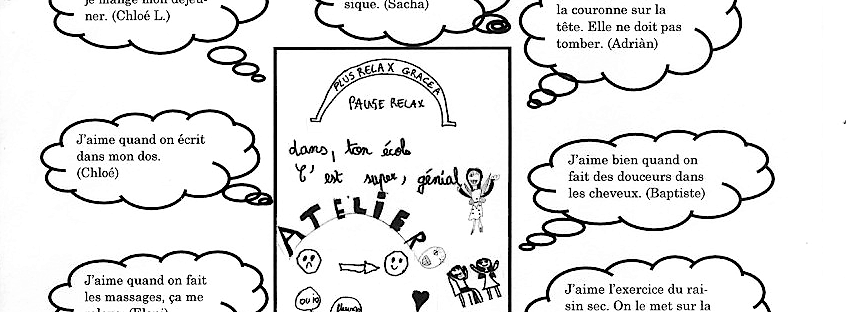 je mange mon déjeu-
ner. (Chloé L.)
sique. (Sacha)
la couronne sur la
tête. Elle ne doit pas
tomber. (Adriàn)
J'aime quand on écrit
dans mon dos.
(Chloé)
PLUS RELAX GRÂCE A
PAUSE RELAX
dans, ton école
C' est super, génial
ATELIER
J'aime bien quand on
fait des douceurs dans
les cheveux. (Baptiste)
J'aime quand on fait
les massages, ça me
J'aime l'exercice du rai-
sin sec. On le met sur la